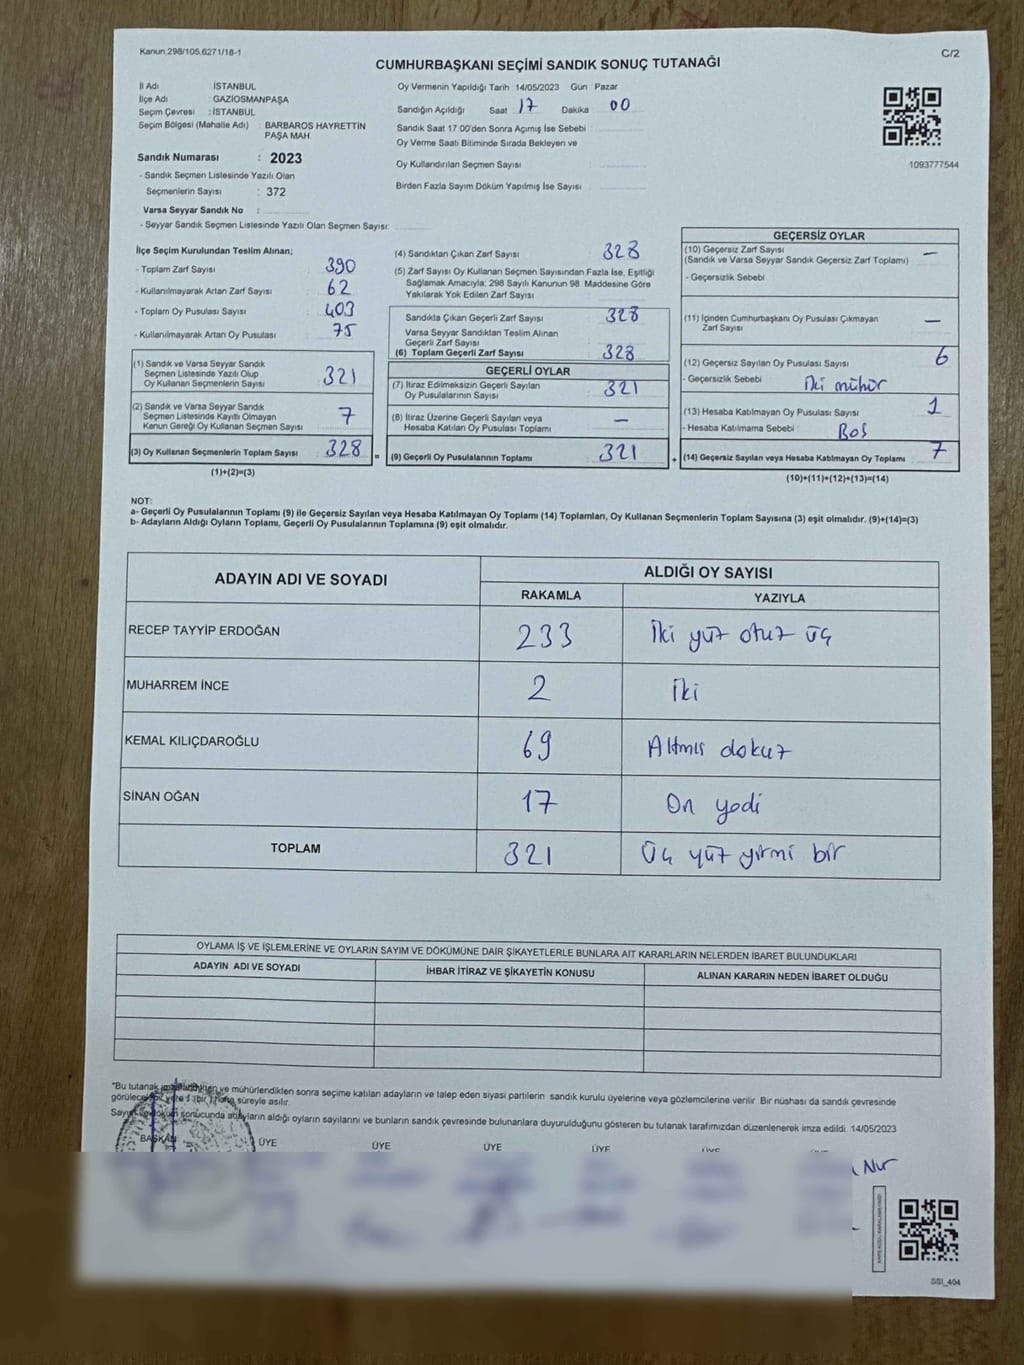 Kanun.298/105.6271/18-1
C/2
CUMHURBAŞKANI SEÇİMİ SANDIK SONUÇ TUTANAĞI
İl Adı : İSTANBUL
İlçe Adı : GAZİOSMANPAŞA
Seçim Çevresi : İSTANBUL
Seçim Bölgesi (Mahalle Adı) : BARBAROS HAYRETTİN
PAŞA MAH
Sandık Numarası : 2023
- Sandık Seçmen Listesinde Yazılı Olan
Seçmenlerin Sayısı : 372
Varsa Seyyar Sandık No :
- Seyyar Sandık Seçmen Listesinde Yazılı Olan Seçmen Sayısı:
Oy Vermenin Yapıldığı Tarih :14/05/2023 Gün : Pazar
Sandığın Açıldığı Saat : 17 Dakika : 00
Sandık Saat 17:00'den Sonra Açımış İse Sebebi :
Oy Verme Saati Bitiminde Sırada Bekleyen ve
Oy Kullandırılan Seçmen Sayısı :
Birden Fazla Sayım Döküm Yapılmış İse Sayısı :
1093777544
İlçe Seçim Kurulundan Teslim Alınan;
- Toplam Zarf Sayısı : 390
- Kullanılmayarak Artan Zarf Sayısı : 62
- Toplam Oy Pusulası Sayısı : 403
- Kullanılmayarak Artan Oy Pusulası : 75
(1) Sandık ve Varsa Seyyar Sandık
Seçmen Listesinde Yazılı Olup
Oy Kullanan Seçmenlerin Sayısı : 321
(2) Sandık ve Varsa Seyyar Sandık
Seçmen Listesinde Kayıtlı Olmayan
Kanun Gereği Oy Kullanan Seçmen Sayısı : 7
(3) Oy Kullanan Seçmenlerin Toplam Sayısı : 328
(1)+(2)=(3)
(4) Sandıktan Çıkan Zarf Sayısı : 328
(5) Zarf Sayısı Oy Kullanan Seçmen Sayısından Fazla İse, Eşitliği
Sağlamak Amacıyla; 298 Sayılı Kanunun 98. Maddesine Göre
Yakılarak Yok Edilen Zarf Sayısı :
Sandıkta Çıkan Geçerli Zarf Sayısı : 328
Varsa Seyyar Sandıktan Teslim Alınan
Geçerli Zarf Sayısı :
(6) Toplam Geçerli Zarf Sayısı : 328
GEÇERLİ OYLAR
(7) İtiraz Edilmeksizin Geçerli Sayılan
Oy Pusulalarının Sayısı : 321
(8) İtiraz Üzerine Geçerli Sayılan veya
Hesaba Katılan Oy Pusulası Toplamı : —
= (9) Geçerli Oy Pusulalarının Toplamı : 321
GEÇERSİZ OYLAR
(10) Geçersiz Zarf Sayısı : —
(Sandık ve Varsa Seyyar Sandık Geçersiz Zarf Toplamı)
- Geçersizlik Sebebi :
(11) İçinden Cumhurbaşkanı Oy Pusulası Çıkmayan
Zarf Sayısı : —
(12) Geçersiz Sayılan Oy Pusulası Sayısı : 6
- Geçersizlik Sebebi : iki mühür
(13) Hesaba Katılmayan Oy Pusulası Sayısı : 1
- Hesaba Katılmama Sebebi : Boş
+ (14) Geçersiz Sayılan veya Hesaba Katılmayan Oy Toplamı : 7
(10)+(11)+(12)+(13)=(14)
NOT:
a- Geçerli Oy Pusulalarının Toplamı (9) ile Geçersiz Sayılan veya Hesaba Katılmayan Oy Toplamı (14) Toplamları, Oy Kullanan Seçmenlerin Toplam Sayısına (3) eşit olmalıdır. (9)+(14)=(3)
b- Adayların Aldığı Oyların Toplamı, Geçerli Oy Pusulalarının Toplamına (9) eşit olmalıdır.
ADAYIN ADI VE SOYADI
ALDIĞI OY SAYISI
RAKAMLA YAZIYLA
RECEP TAYYİP ERDOĞAN 233 İki yüz otuz üç
MUHARREM İNCE 2 İki
KEMAL KILIÇDAROĞLU 69 Altmış dokuz
SİNAN OĞAN 17 On yedi
TOPLAM 321 Üç yüz yirmi bir
OYLAMA İŞ VE İŞLEMLERİNE VE OYLARIN SAYIM VE DÖKÜMÜNE DAİR ŞİKAYETLERLE BUNLARA AİT KARARLARIN NELERDEN İBARET BULUNDUKLARI
ADAYIN ADI VE SOYADI İHBAR İTİRAZ VE ŞİKAYETİN KONUSU ALINAN KARARIN NEDEN İBARET OLDUĞU
*Bu tutanak ve mühürlendikten sonra seçime katılan adayların ve talep eden siyasi partilerin sandık kurulu üyelerine veya gözlemcilerine verilir. Bir nüshası da sandık çevresinde
1 (bir) hafta süreyle asılır.
sonucunda adayların aldığı oyların sayılarını ve bunların sandık çevresinde bulunanlara duyurulduğunu gösteren bu tutanak tarafımızdan düzenlenerek imza edildi. 14/05/2023
BAŞKAN ÜYE ÜYE ÜYE ÜYE ÜYE
Nur
SSI_404